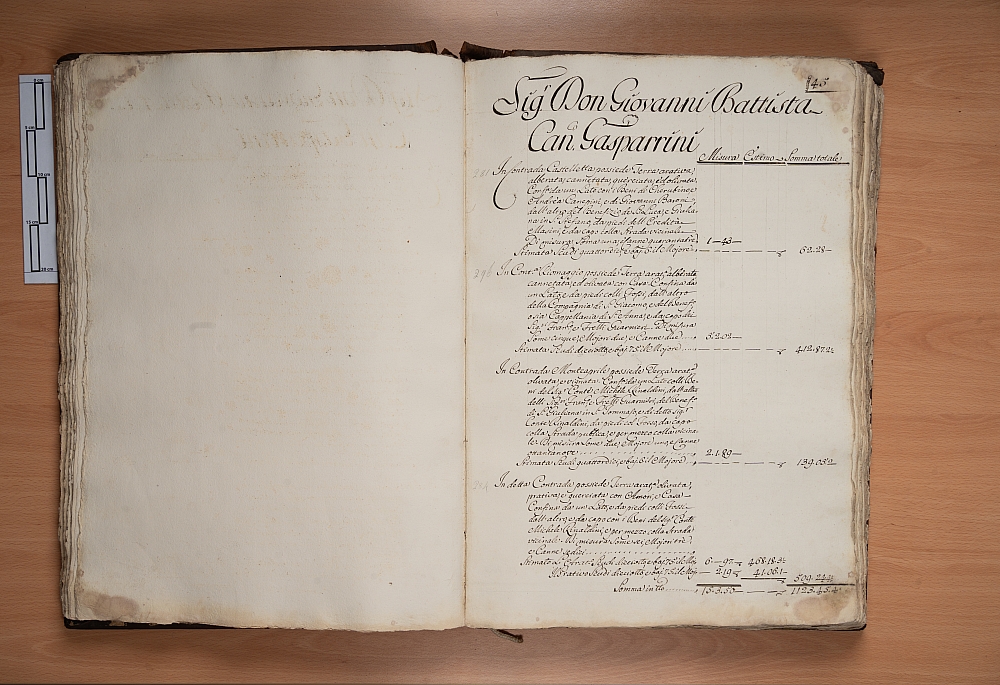 145
Sig.r Don Giovanni Battista
Can. Gasparrini
Misura Estimo Somma totale
In Contrada Castelletta possiede Terra arativa,
alberata, cannetata, querciata, ed olivata
Conf.e da un Lato con i Beni di Cherubino, e
Andrea Canepini, e di Giovanni Baroni,
dall'altro del Benefizio de SS. Luca, e Giulia-
na in S. Stefano, da piedi dell'Eredità
Masini, e da capo colla Strada vicinale
Di misura Soma una, e Canne quarantatre 1-43
Stimata Scudi quattordici, e baj. 61 il Mojore 62.28
In Cont.a Romaggio possiede Terra arat.a alberata
cannetata, ed olivata con Casa. Confina da
un Lato, e da piedi colli Fossi, dall'altro
della Compagnia di S. Giacomo, e del Benef.o
o sia Cappellania di S. Anna, e da capo delli
Sig.ri Fran.co e Fr̃elli Guarnieri. Di misura
Some cinque, Mojori due, e Canne due 5.2.02
Stimata Scudi dieciotto, e baj. 75 il Mojore 412.87.2
In Contrada Monteaprile possiede Terra arat.a
olivata, e vignata. Conf.a da un Lato colli Be-
ni del Sig. Conte Michele Rinaldini, dall'altro
delli Sig.ri Fran.co e Fr̃elli Guarnieri, del Benef.o
di S. Giuliana in S. Tommaso, e di detto Sig.r
Conte Rinaldini, da piedi col Fosso, da capo
colla Strada publica, e per mezzo colla vicina-
le. Di misura Some due, Mojore uno, e Canne
ottantanove 2.1.89
Stimata Scudi quattordici, e baj. 61 il Mojore 139.03
In detta Contrada possiede Terra arat.a olivata,
prativa, e querciata con Amori, e Casa
Confina da un Lato, e da piedi colli Fossi,
dall'altro, e da capo con i Beni del Sig. Conte
Michele Rinaldini, e per mezzo colla Strada
vicinale. Di misura Some sei, Mojori tre,
e Canne sedici
Stimato L'Arat. Scudi dieciotto, e baj. 75 il Moj. 6-97 468.18
Il Prativo Scudi dieciotto, e baj. 75 il Moj. 2.19 41.06.1 509.24
Somma in tto 15.3.50 1123.43